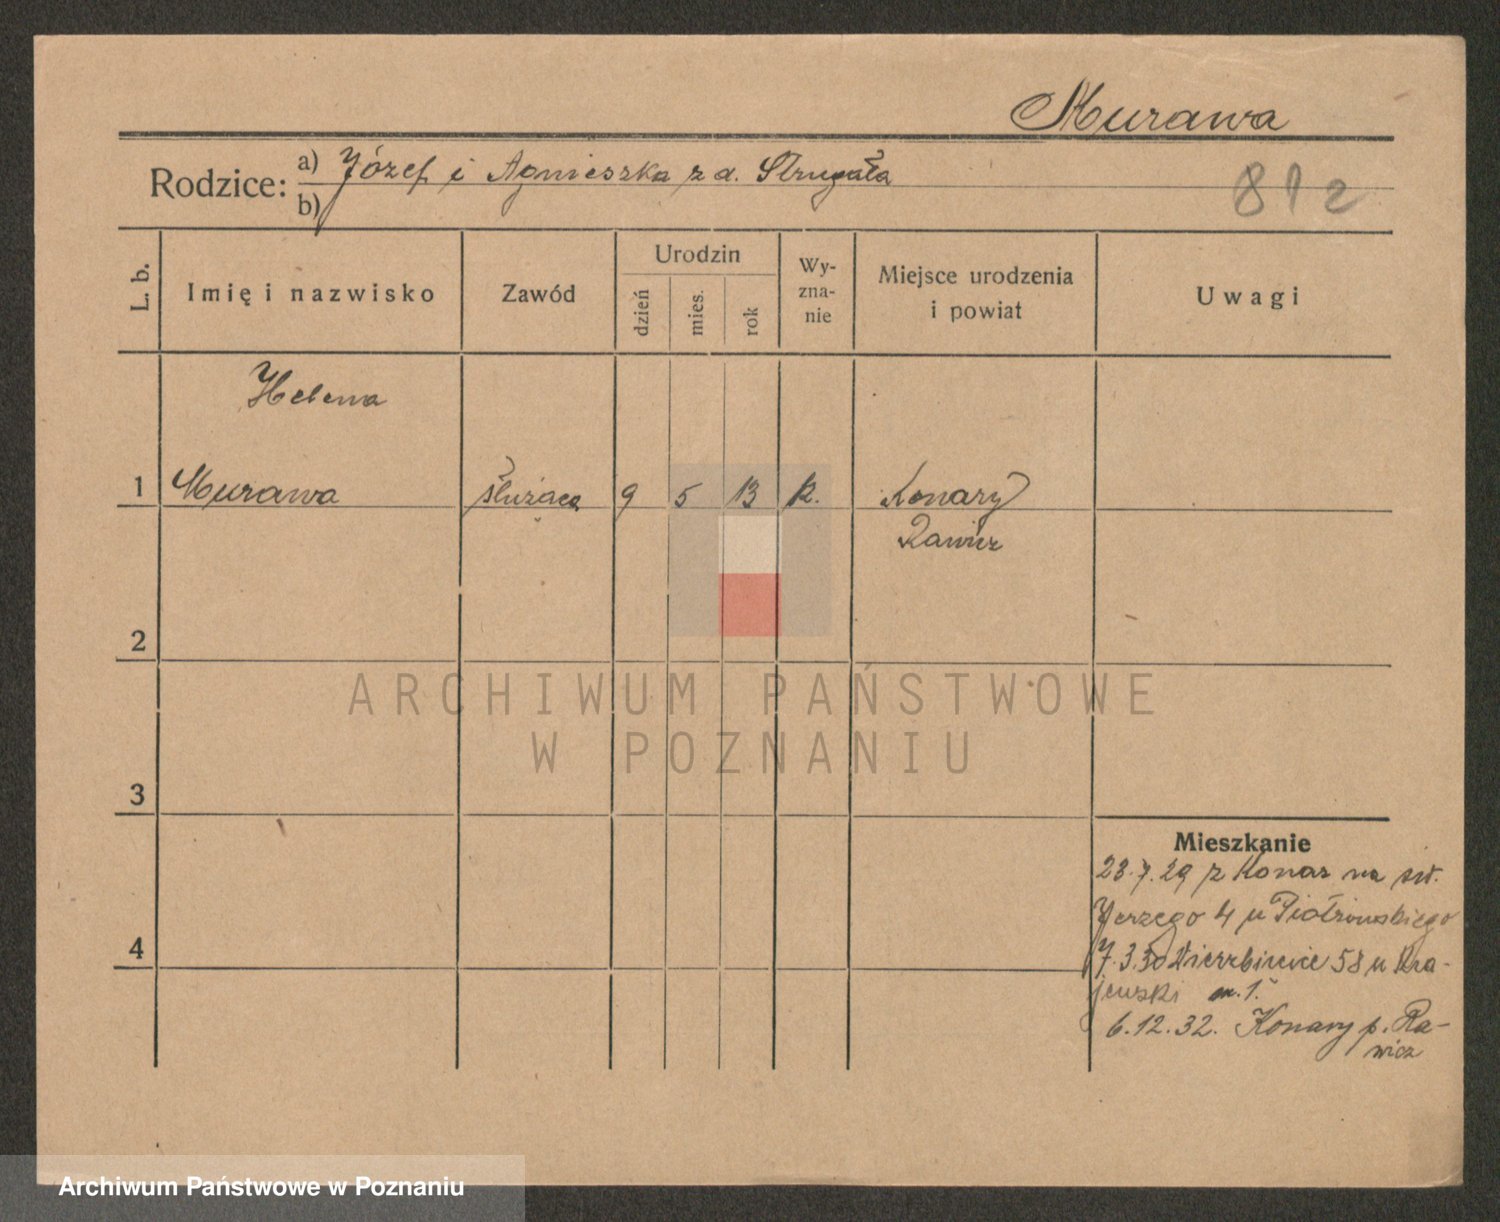 Murawa
Rodzice: a) Józef i Agnieszka z d. Strugała
b)
812
L. b. Imię i nazwisko Zawód Urodzin dzień mies. rok Wy-zna-nie Miejsce urodzenia i powiat Uwagi
Helena
1 Murawa służąca 9 5 13 k. Konary
Rawicz
2
ARCHIWUM PAŃSTWOWE
W POZNANIU
3
Mieszkanie
23.7.29 z Konar na św.
Jerzego 4 u Piotrowskiego
4
7.3.30 Wierzbięcice 58 u Kra-
jewski m.1.
6.12.32. Konary p. Ra-
wicz
Archiwum Państwowe w Poznaniu